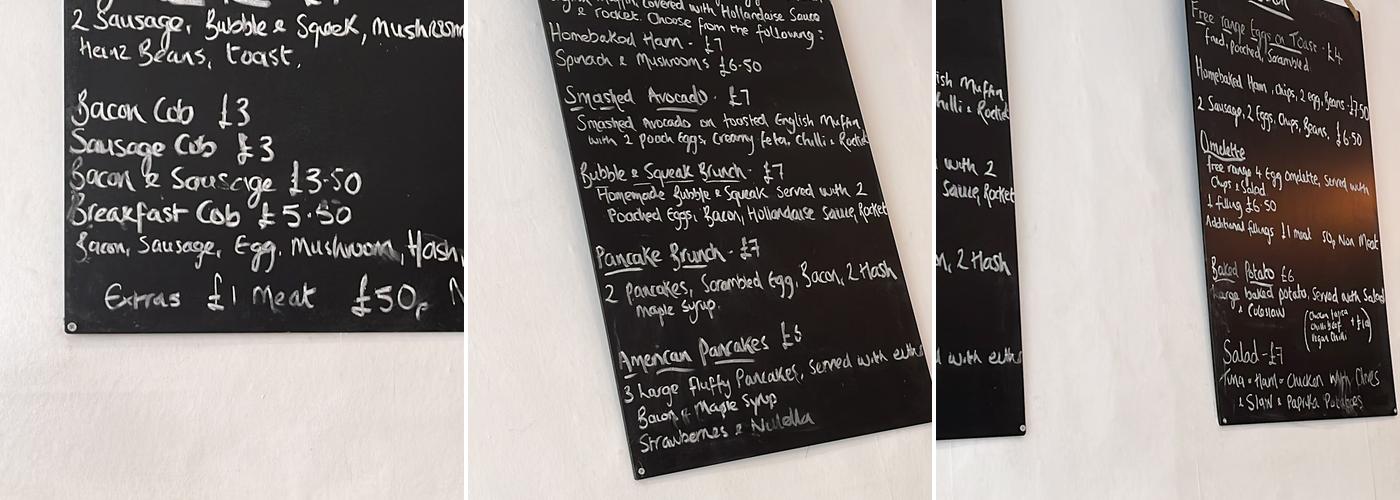 2 Sausage, Bubble & Squeek, Mushroom
Heinz Beans, toast.
Bacon Cob £3
Sausage Cob £3
Bacon & Sausage £3.50
Breakfast Cob £5.50
Bacon, Sausage, Egg, Mushroom, Hash,
Extras £1 Meat £50p N
Muffin, covered with Hollandaise Sauce
& rocket. Choose from the following:
Homebaked Ham - £7
Spinach & Mushrooms £6.50
Smashed Avocado - £7
Smashed Avocado on toasted English Muffin
with 2 Poach Eggs, Creamy feta, Chilli & Rocket
Bubble & Squeak Brunch - £7
Homemade Bubble & Squeak Served with 2
Poached Eggs, Bacon, Hollandaise Sauce, Rocket
Pancake Brunch - £7
2 Pancakes, Scrambled Egg, Bacon, 2 Hash
Maple Syrup.
American Pancakes £6
3 Large fluffy Pancakes, served with eith
Bacon & Maple Syrup
Strawberries & Nutella
ish Muffin
Chilli & Rocket
with 2
Sauce, Rocket
n, 2 Hash
d with eith
Free range Eggs on Toast - £4
fried, Poached, Scrambled
Homebaked Ham, Chips, 2 egg, Beans - £7.50
2 Sausage, 2 Eggs, Chips, Beans, £6.50
Omelette
free range 4 Egg Omelette, served with
Chips & Salad
1 filling £6.50
Additional fillings £1 meat 50p Non Meat
Baked Potato £6
Large baked potato, served with Salad
& Coleslaw
Chilli Beef + £1
Vegan Chilli
Salad - £7
Tuna or Ham or Chicken with Olives
& Slaw & Paprika Potatoes